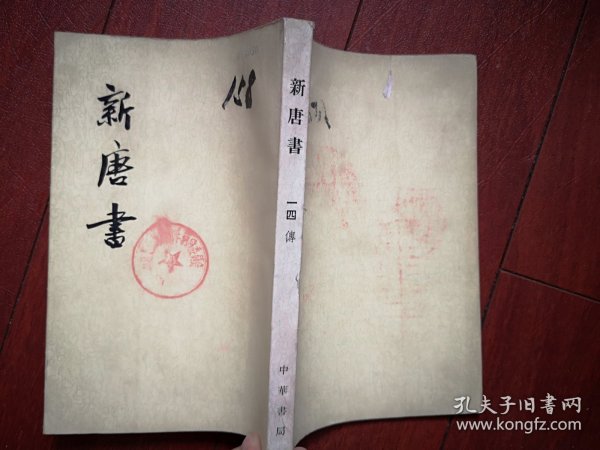 新唐書
158
新唐書
一四傳
中華書局
孔夫子旧书网
www.kongfz.com